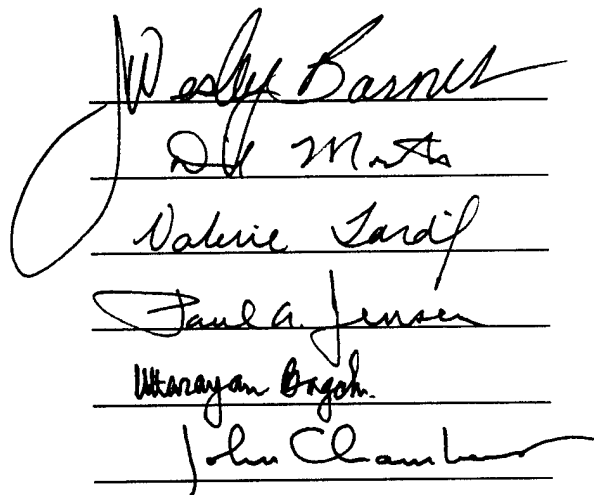 J Wesley Barnes
Valerie Tardif
Paul A. Jensen
Uttarayan Bagchi
John Chambers